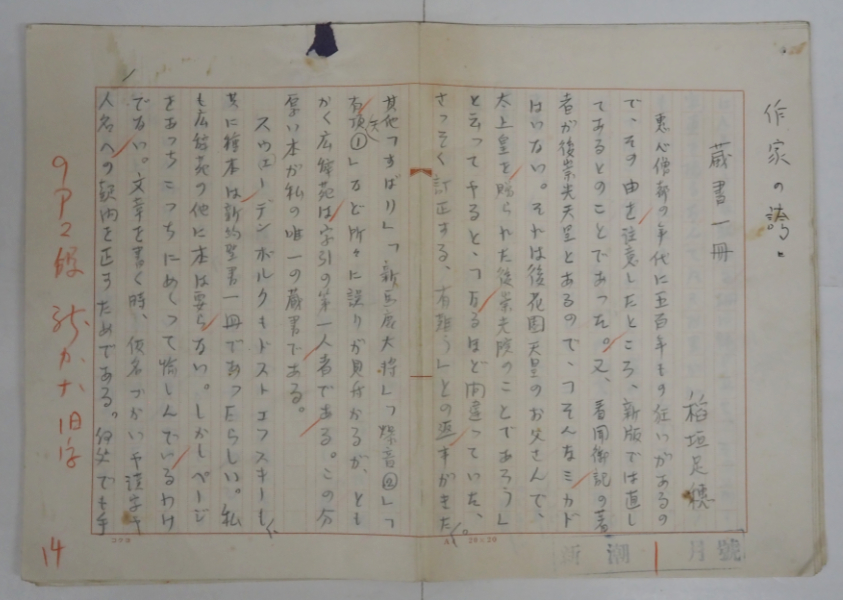 作家の誇り
蔵書一冊
稲垣足穂
恵心僧都の年代に五百年もの狂いがあるの
で、その由を注意したところ、新版では直し
てあるとのことであった。又、看聞御記の著
者が後崇光天皇とあるので、「そんなミカド
はいない。それは後花園天皇のお父さんで、
太上皇を贈られた後崇光院のことであろう」
と云ってやると、「なるほど間違っていた、
さっそく訂正する、有難う」との返事がきた。
其他「すばり」「新馬産大将」「爆音②」「
有頂①」など所々に誤りが見付かるが、とも
かく広辞苑は字引の第一人者である。この分
厚い本が私の唯一の蔵書である。
スウェーデンボルクもドストエフスキーも、
共に種本は新約聖書一冊であったらしい。私
も広辞苑の他に本は要らない。しかしページ
をあっちこっちにめくって愉しんでいるわけ
でない。文章を書く時、仮名づかいや漢字や
人名への
を正すためである。何文でも手
9ア2段
新カナ旧字
14
新潮 1月號
コクヨ
20×20